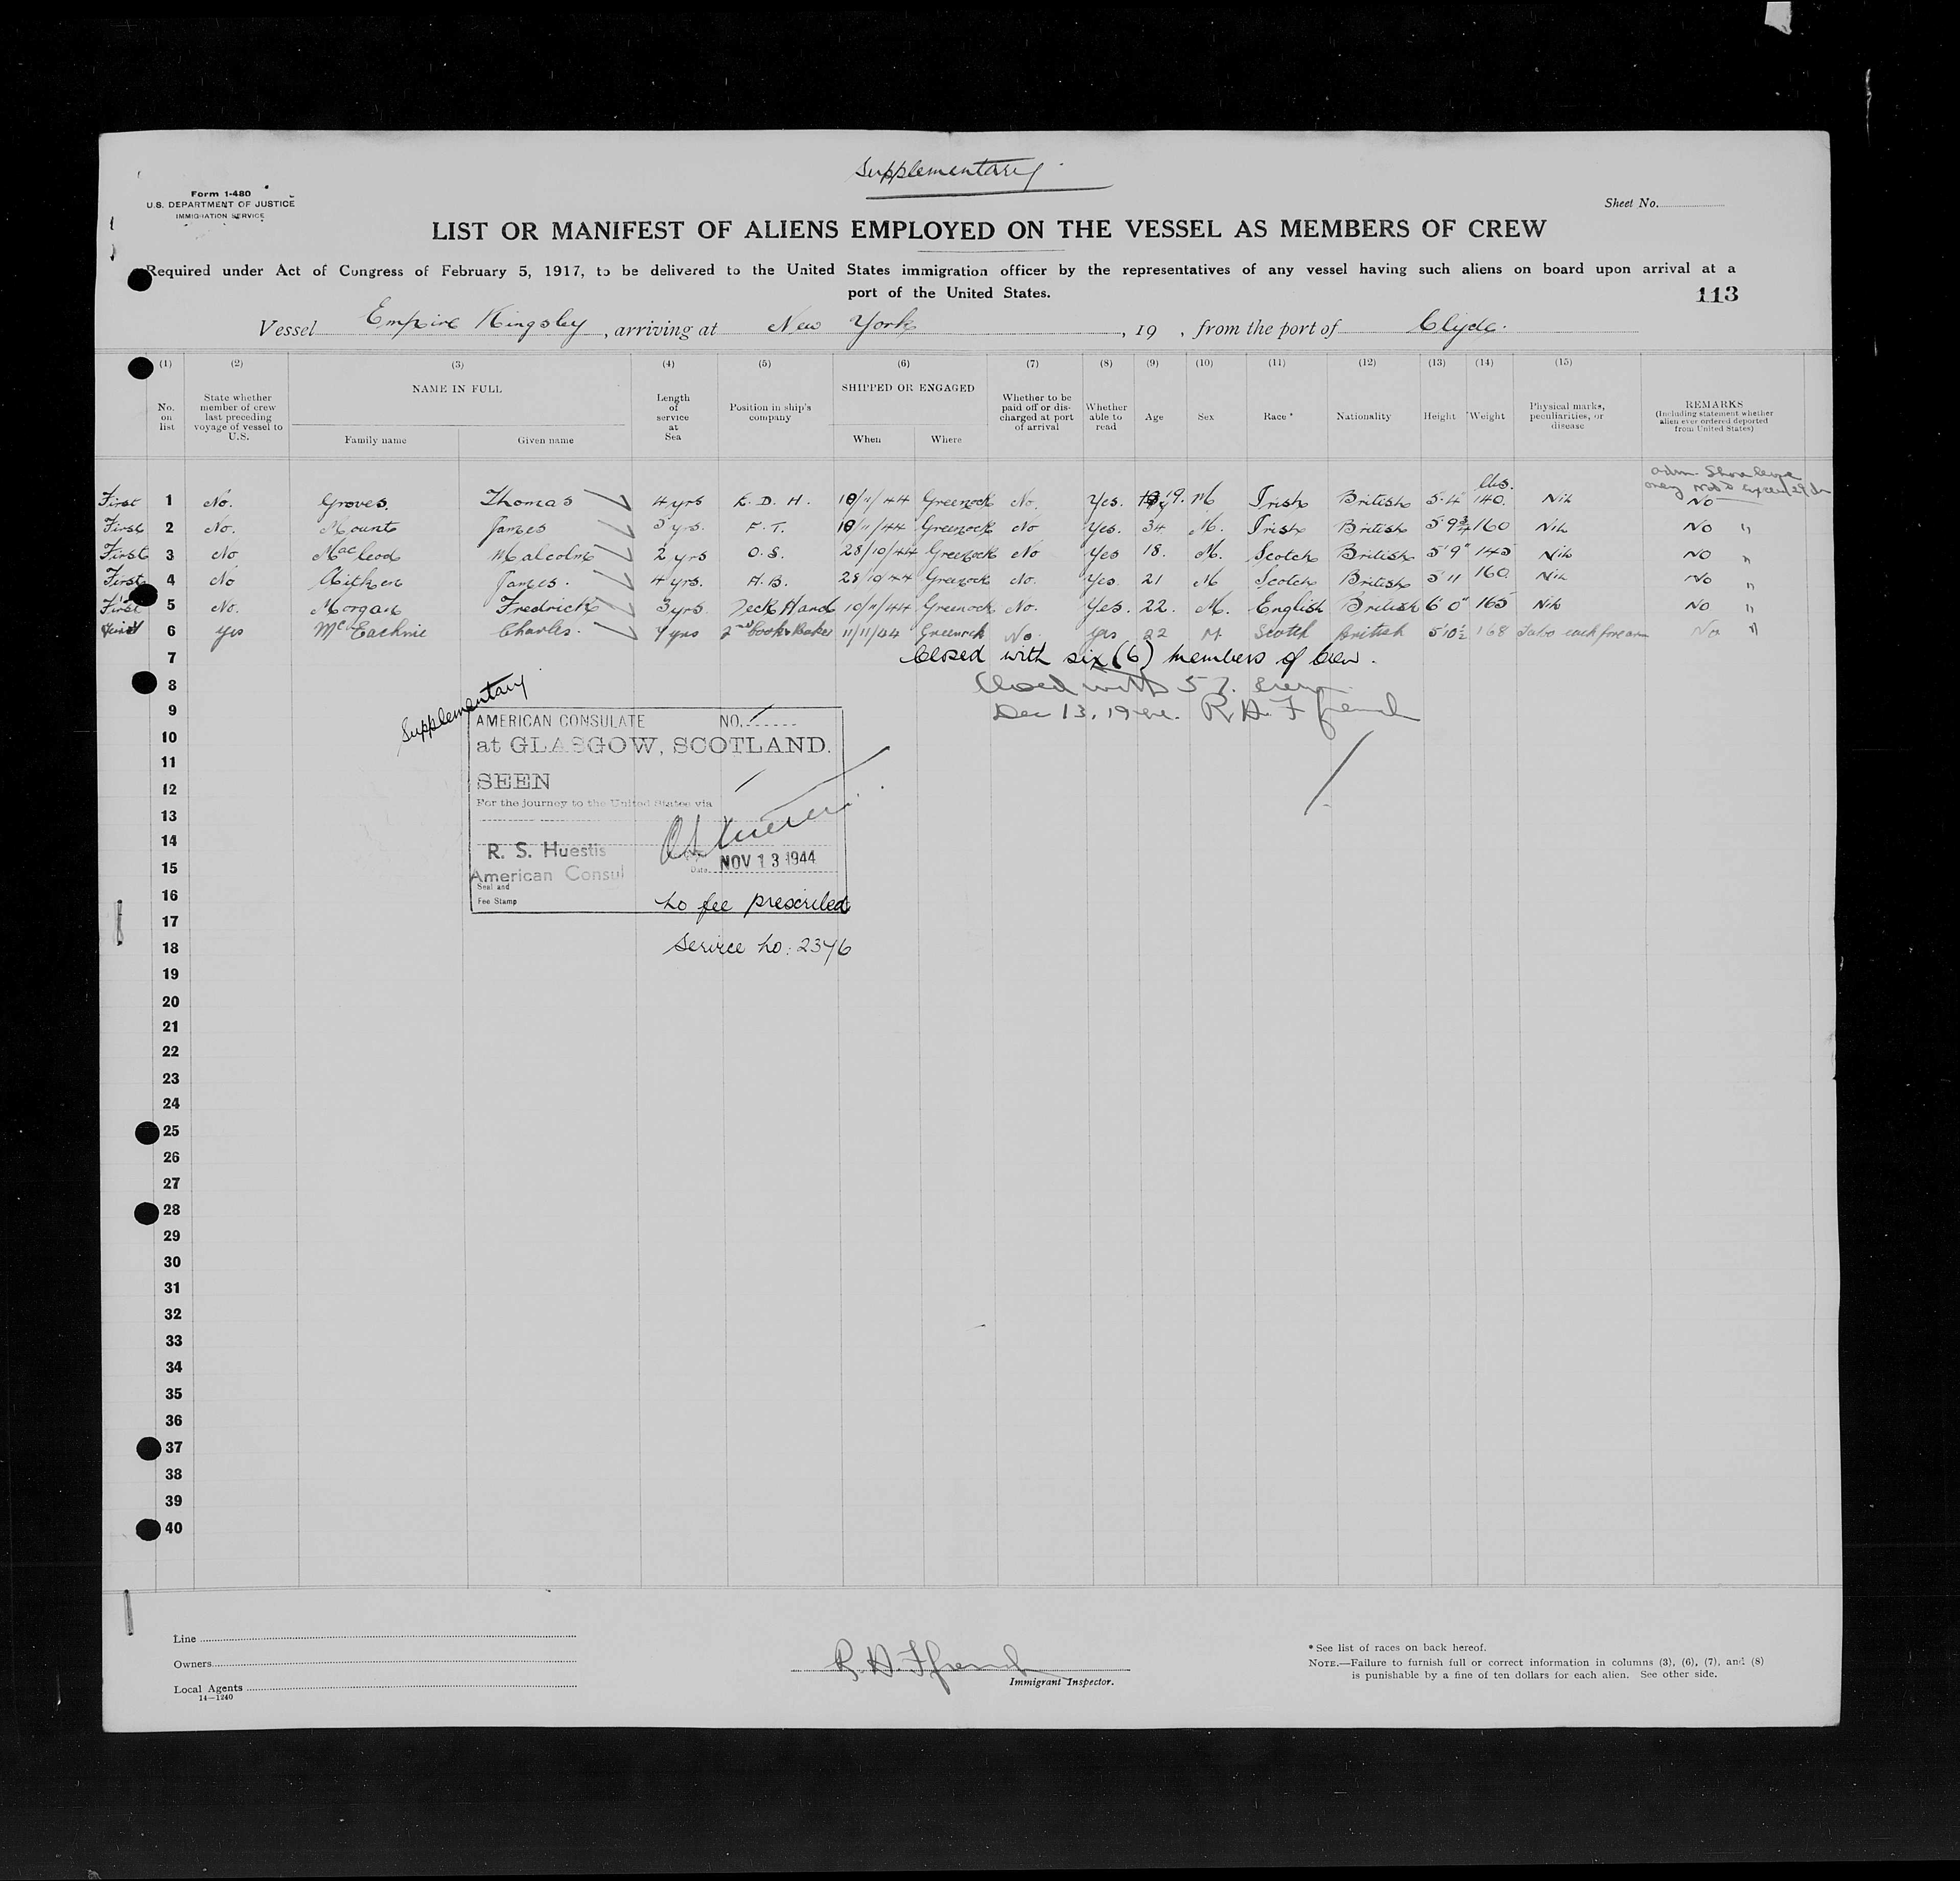 Supplementary
Form 1-480
U.S. DEPARTMENT OF JUSTICE
IMMIGRATION SERVICE
Sheet No.
LIST OR MANIFEST OF ALIENS EMPLOYED ON THE VESSEL AS MEMBERS OF CREW
Required under Act of Congress of February 5, 1917, to be delivered to the United States immigration officer by the representatives of any vessel having such aliens on board upon arrival at a
port of the United States.
113
Vessel Empire Kingsley, arriving at New York, 19 , from the port of Clyde.
(1) (2) (3) (4) (5) (6) (7) (8) (9) (10) (11) (12) (13) (14) (15)
No. on list
State whether member of crew last preceding voyage of vessel to U.S.
NAME IN FULL
Family name
Given name
Length of service at Sea
Position in ship's company
SHIPPED OR ENGAGED
When
Where
Whether to be paid off or discharged at port of arrival
Whether able to read
Age
Sex
Race *
Nationality
Height
Weight
Physical marks, peculiarities, or disease
REMARKS
(Including statement whether alien ever ordered deported from United States)
adm. Shore leave
only not to exceed 29 da
lbs.
First 1 No. Groves. Thomas 4 yrs E. D. H. 10/11/44 Greenock No. Yes. 19. M Irish British 5-4" 140. Nil No
First 2 No. Mount James 5 yrs. F. T. 10/11/44 Greenock No Yes. 34 M. Irish British 5 9¾ 160 Nil No "
First 3 No MacLeod Malcolm 2 yrs O.S. 28/10/44 Greenock No Yes 18. M. Scotch British 5'9" 145 Nil No "
First 4 No Aitken James. 4 yrs. A.B. 28/10/44 Greenock No. Yes. 21 M Scotch British 5'11 160. Nil No "
First 5 No. Morgan Fredrick 3 yrs. Deck Hand 10/11/44 Greenock No. Yes. 22. M. English British 6'0" 165 Nil No "
6 Yes McEachnie Charles. 4 yrs 2nd Cook & Baker 11/11/44 Greenock No. yes 22 M Scotch British 5'10½ 168 Tatoo each forearm No "
7 Closed with six (6) members of crew.
8 Closed with 57. crew
9 Dec 13, 1944. R. H. Ffrench
Supplementary
10
11
12
13
14
15
16
17
18
19
20
21
22
23
24
25
26
27
28
29
30
31
32
33
34
35
36
37
38
39
40
AMERICAN CONSULATE NO.
at GLASGOW, SCOTLAND.
SEEN
For the journey to the United States via
R. S. Huestis
American Consul
Date NOV 13 1944
Seal and
Fee Stamp
No fee prescribed
Service No: 2376
Line
Owners
Local Agents
14—1240
R. H. Ffrench
Immigrant Inspector.
* See list of races on back hereof.
NOTE.—Failure to furnish full or correct information in columns (3), (6), (7), and (8)
is punishable by a fine of ten dollars for each alien. See other side.